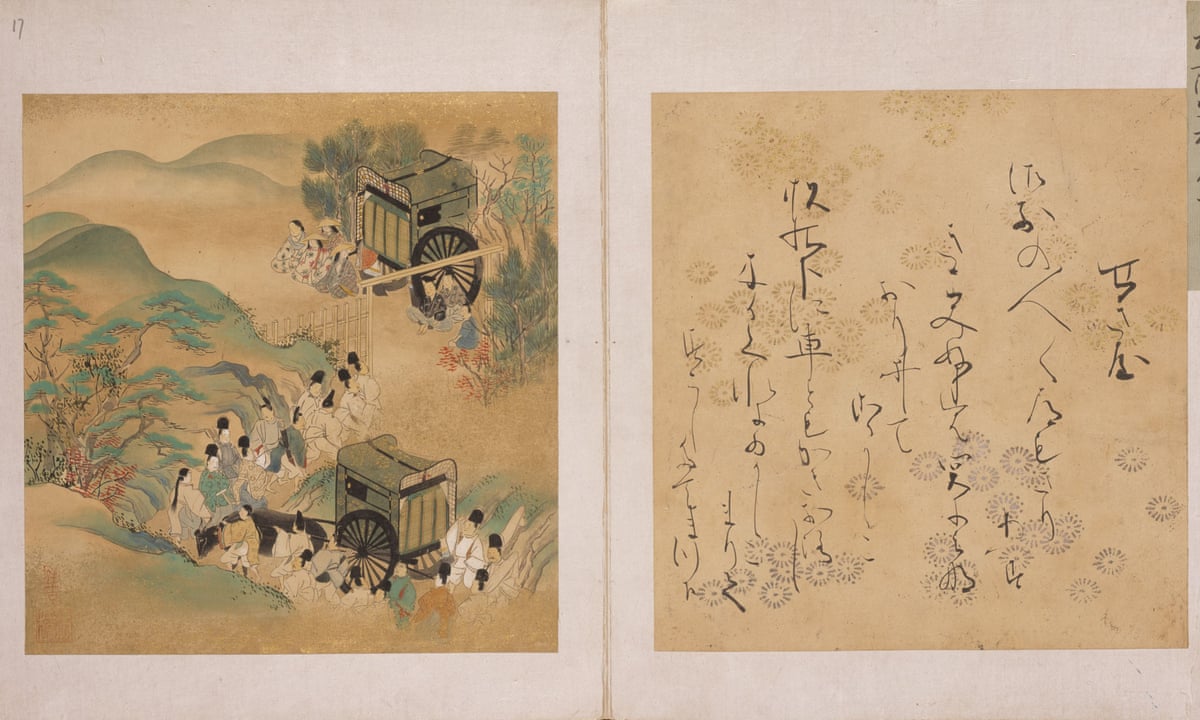 17
せき屋
御前の人〱道もさり
あへす
きこみぬれは関山にみな
おりゐて
こゝかしこの
杉の下に車ともかきおろし
木かくれにゐかしこ
まりて
すくしたてまつる